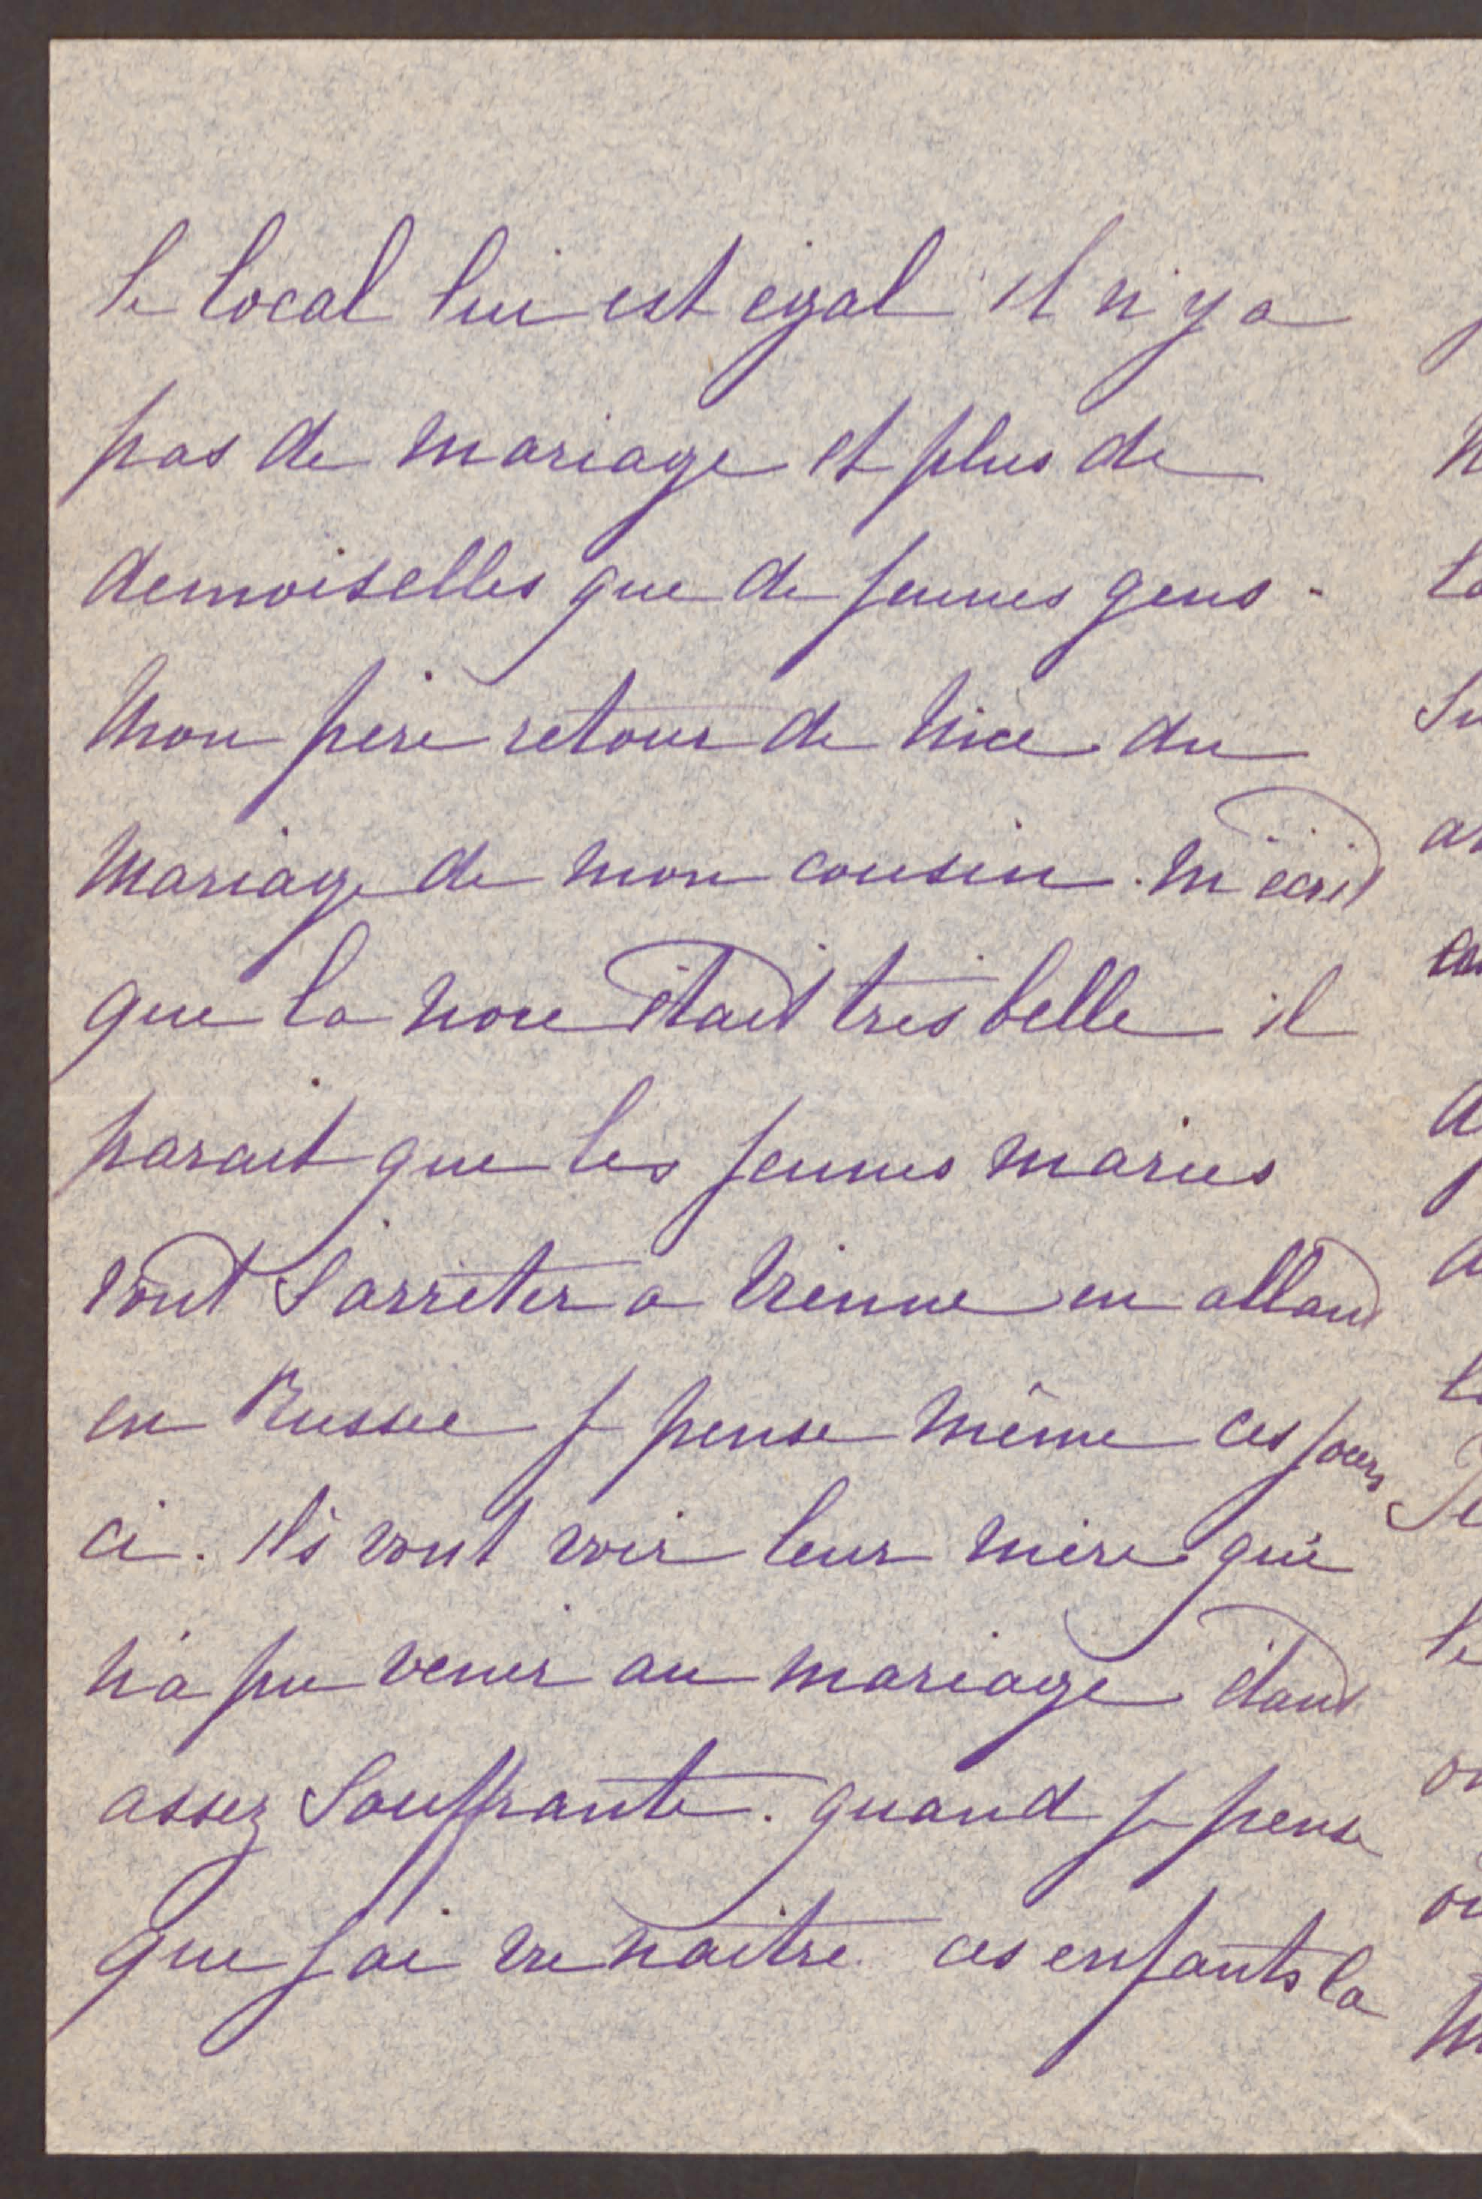 le local lui est egal il n'y a
pas de mariage et plus de
demoiselles que de jeunes gens.
Mon père retour de Nice du
mariage de mon cousin. m'écrit
que la noce était très belle il
parait que les jeunes mariés
vont s'arrêter a Vienne en allant
en Russie je pense même ces jours
ci. Ils vont voir leur mère qui
n'a pu venir au mariage étant
assez Souffrante. quand je pense
que j'ai vu naitre ces enfants la